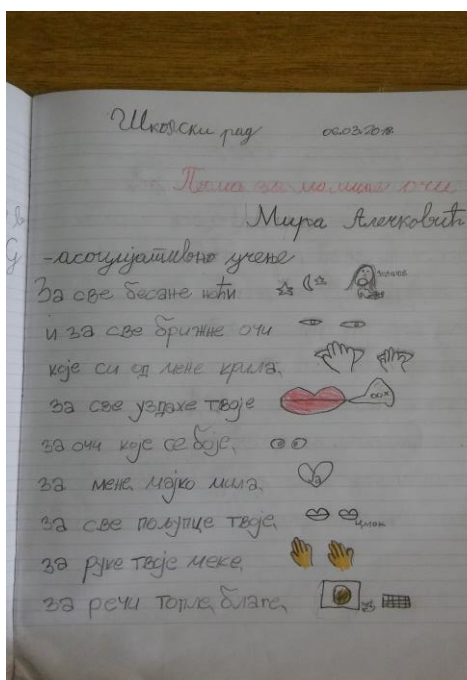 Школски рад 06.03.2018.
Песма за мамине очи
Мира Алечковић
-асоцијативно учење
За све бесане ноћи
и за све брижне очи
које си од мене крила,
за све уздахе твоје оох
за очи које се боје,
за мене, мајко мила,
за све пољупце твоје, цмок
за руке твоје меке,
за речи топле, благе,